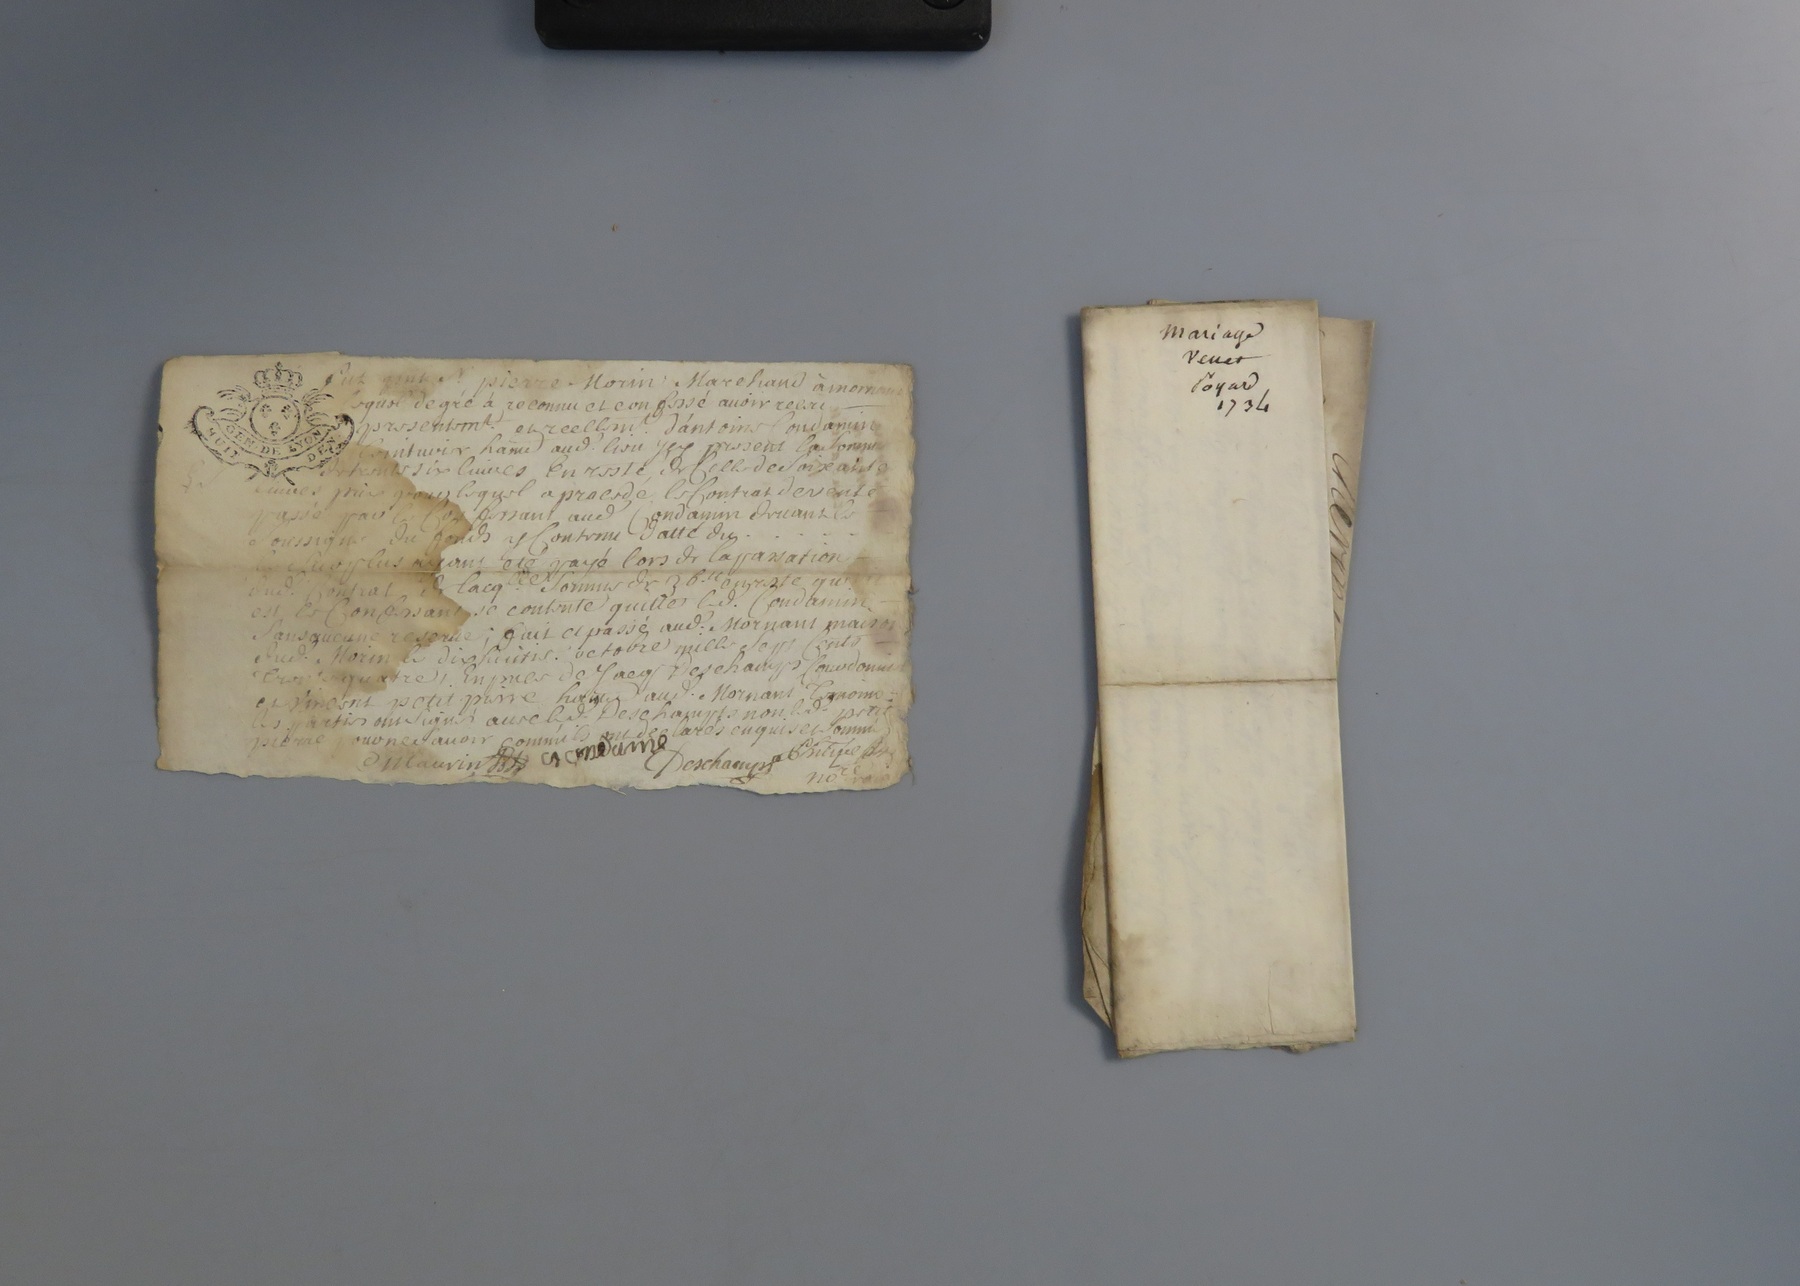 GEN. DE LYON
HUIT DEN.
fut present Sr. pierre Morin Marchand à mornant
lequel de gré à reconnu et confessé avoir receu
presentemt. et reellemt. d'antoine Condamin
habt. aud. lieu icy present la somme
de trente six livres En reste de Celle de soixante
livres prix pour lequel a procedé le Contrat de vente
passé par le Confessant aud. Condamin devant le
soussigné du fonds y Contenu datté du
le surplus ayant été payé lors de la passation
dud. Contrat de lacq. somme de 36 ll
est le Confessant se contente quitte led. Condamin
sans aucune reserve ; fait et passé aud. Mornant maison
dud. Morin le dix huitie. octobre mille sept Cents
trente quatre, En pnce de Jacq. Deschamps Cordonnier
et Vincent petit pierre habts. aud. Mornant Temoins
les parties ont signé avec led. Deschamps non led. petit
pierre pour ne sçavoir comm'ils ont declarés enquis et sommé
Maurin A Condamine Deschamps
no.re
Mariage
Venet
Poyard
1734